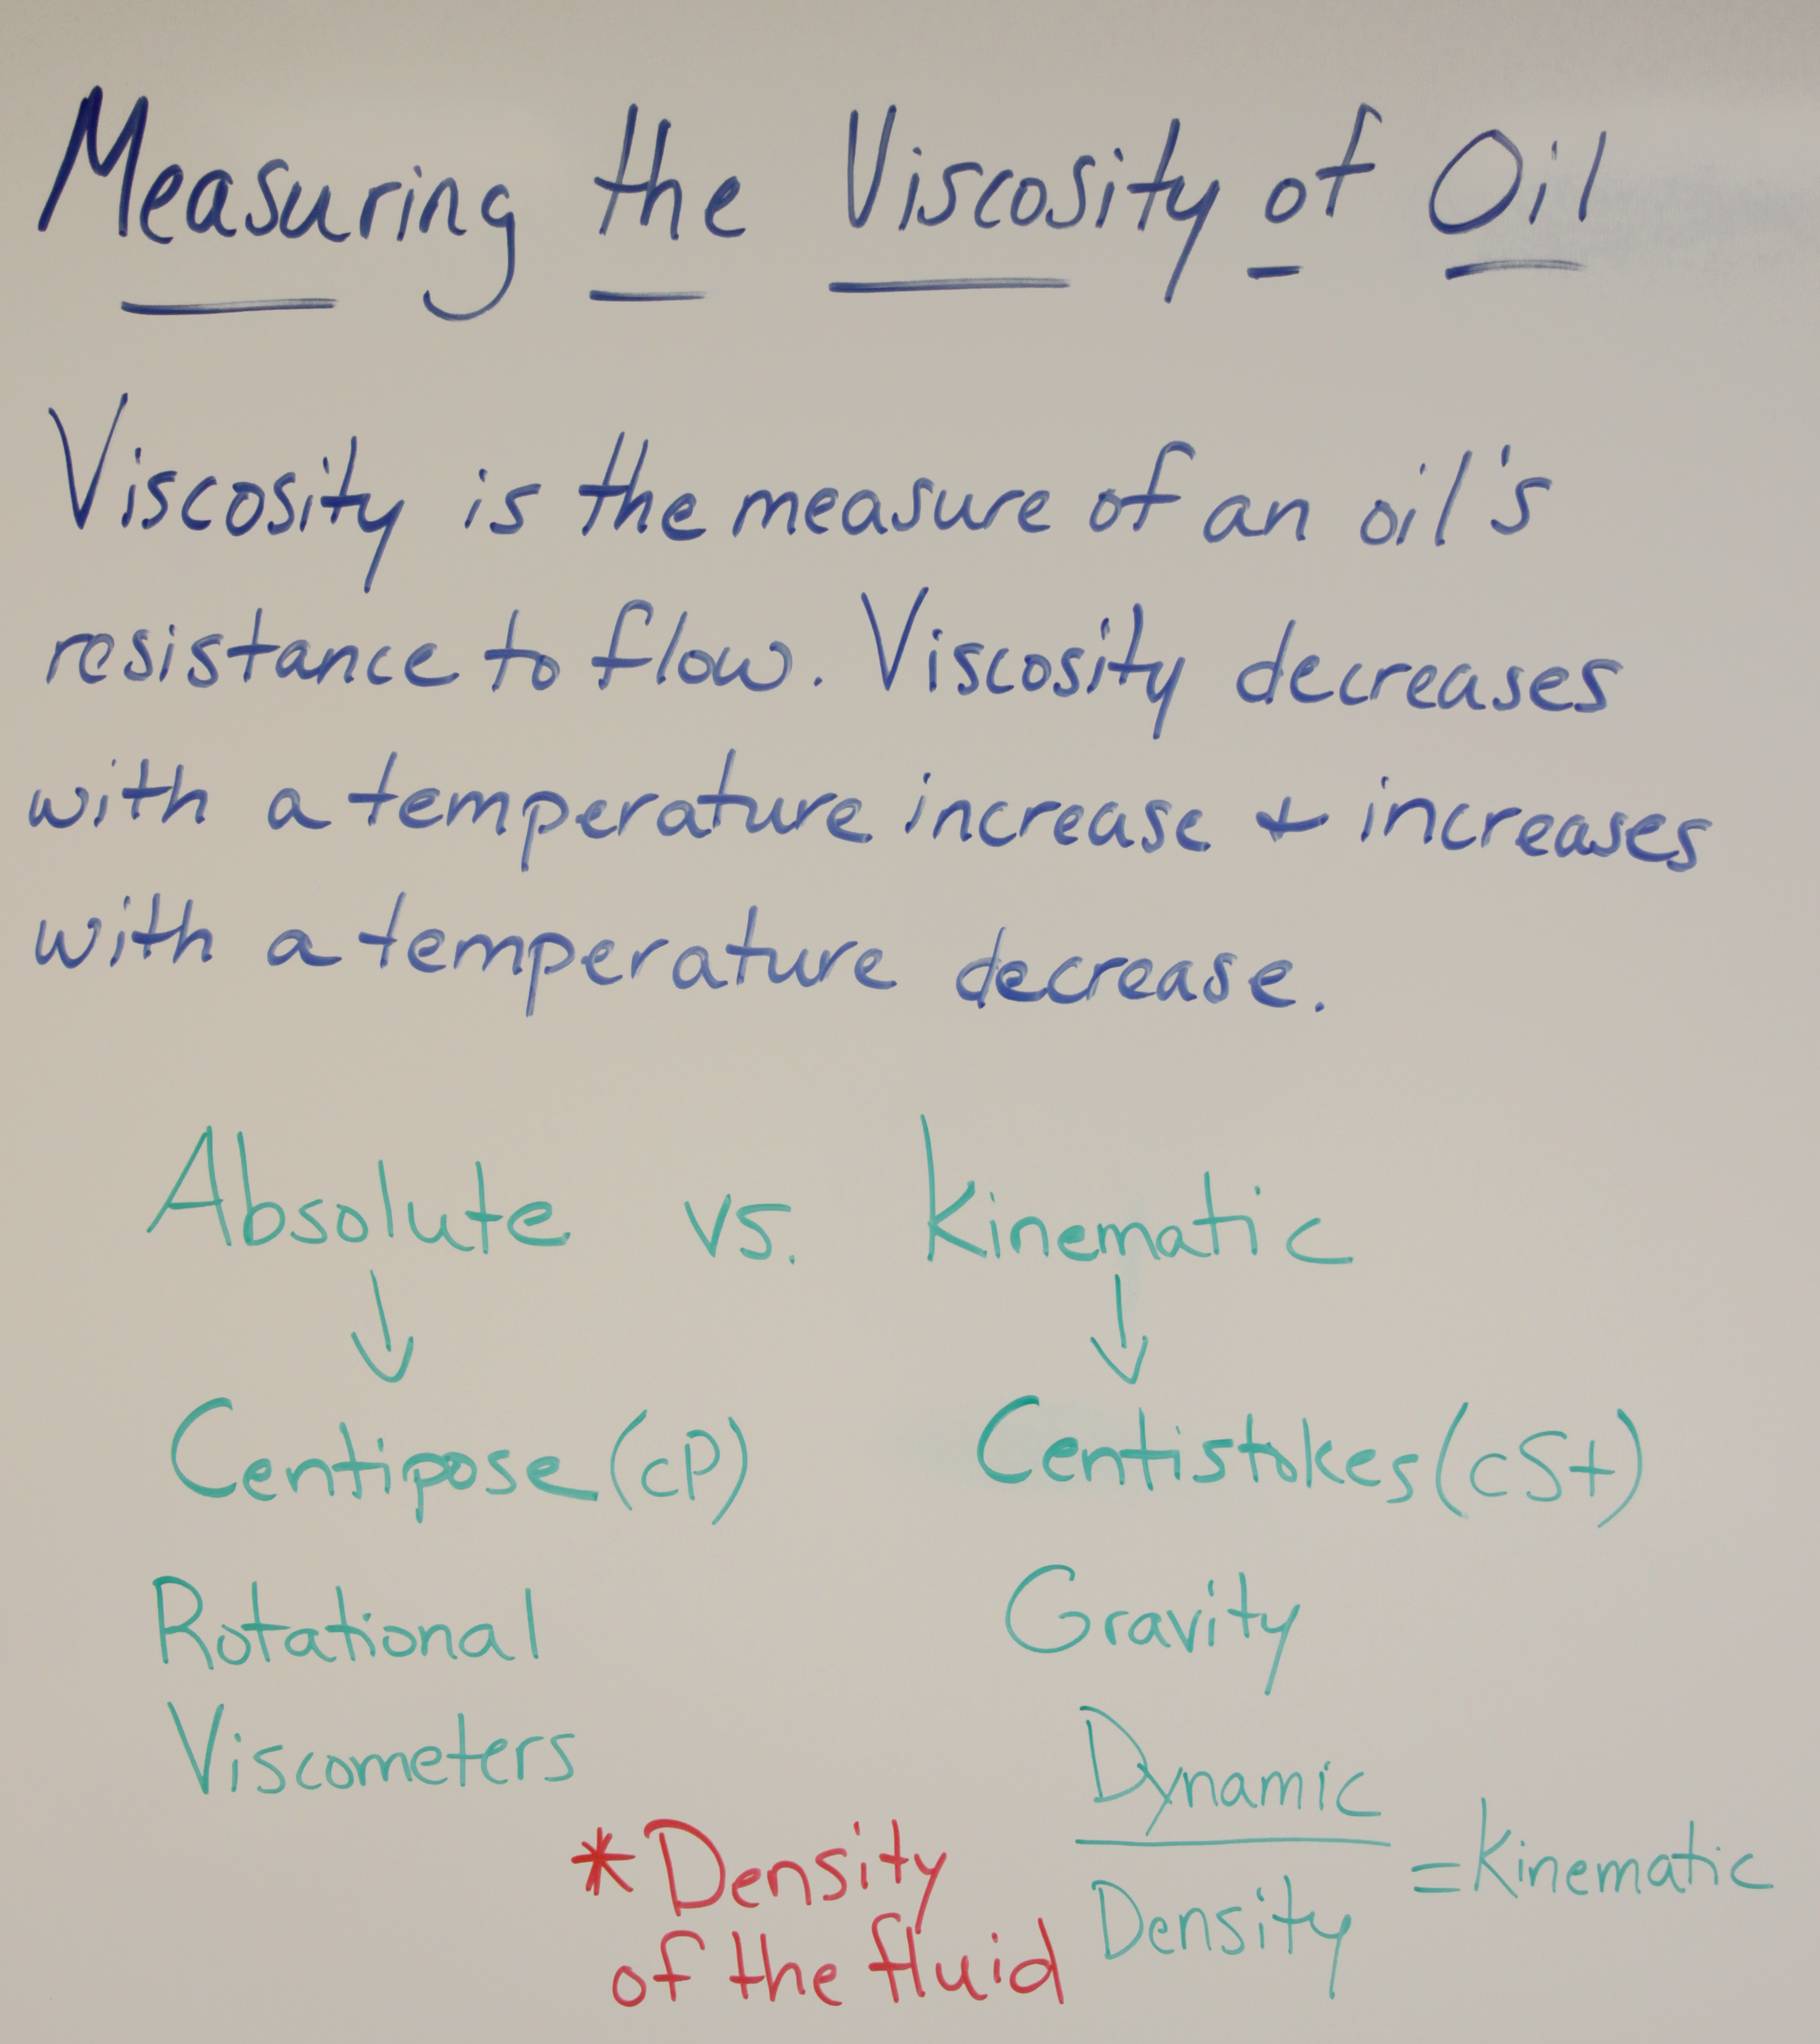 Measuring the Viscosity of Oil
Viscosity is the measure of an oil's
resistance to flow. Viscosity decreases
with a temperature increase + increases
with a temperature decrease.
Absolute vs. Kinematic
↓ ↓
Centipose (cP) Centistokes (cSt)
Rotational Gravity
Viscometers
Dynamic
= Kinematic
Density
* Density
of the fluid